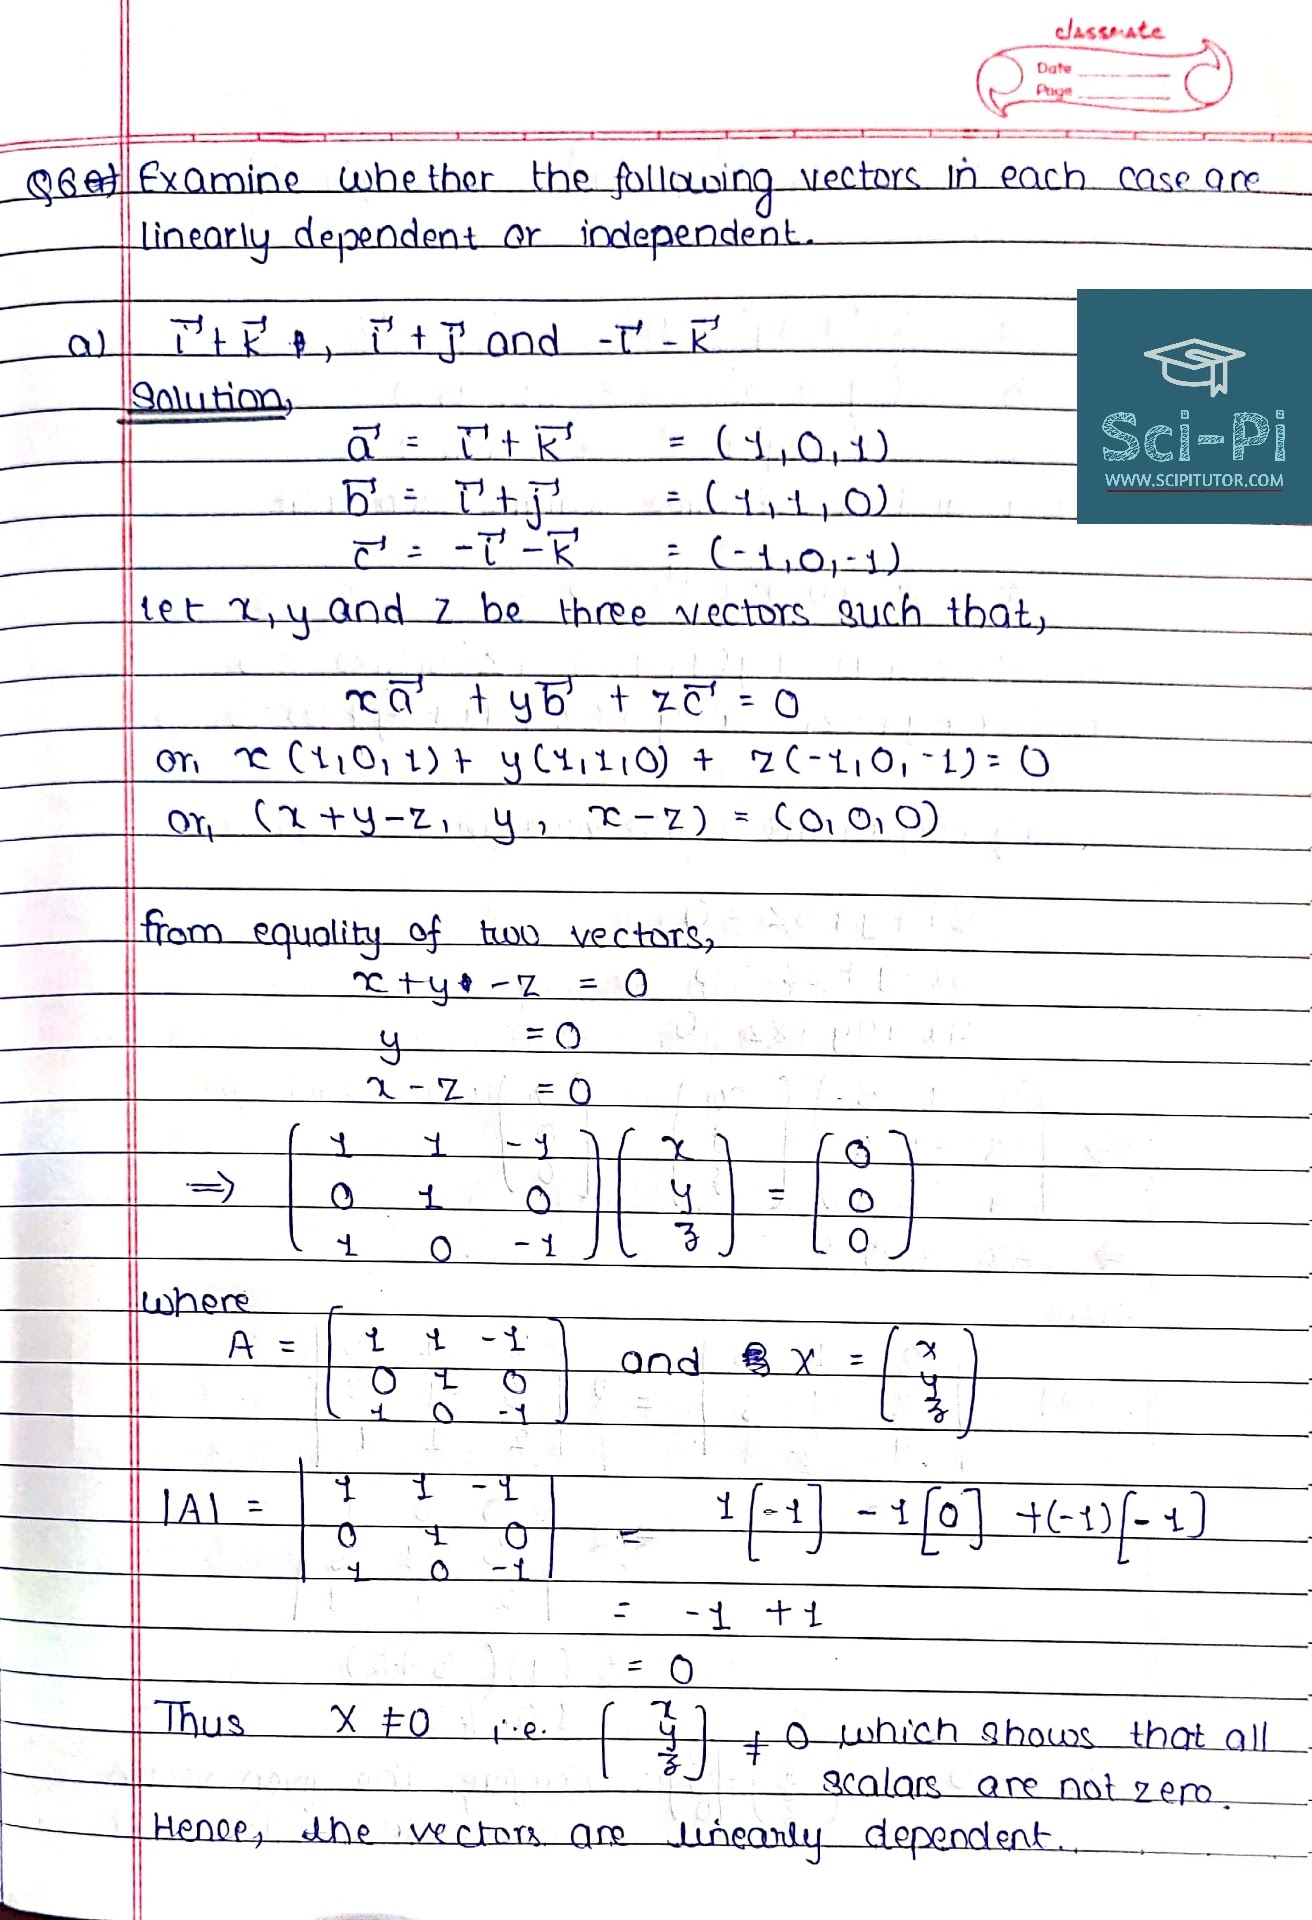 classmate
Date
Page
Q6 Examine whether the following vectors in each case are
linearly dependent or independent.
a) i⃗ + k⃗ , i⃗ + j⃗ and -i⃗ - k⃗
Sci-Pi
WWW.SCIPITUTOR.COM
Solution,
a⃗ = i⃗ + k⃗ = (1, 0, 1)
b⃗ = i⃗ + j⃗ = (1, 1, 0)
c⃗ = -i⃗ - k⃗ = (-1, 0, -1)
let x, y and z be three vectors such that,
x a⃗ + y b⃗ + z c⃗ = 0
or, x (1, 0, 1) + y (1, 1, 0) + z (-1, 0, -1) = 0
or, (x + y - z, y, x - z) = (0, 0, 0)
from equality of two vectors,
x + y - z = 0
y = 0
x - z = 0
1 1 -1 x 0
⇒ 0 1 0 y = 0
1 0 -1 z 0
where
A = 1 1 -1 and X = x
0 1 0 y
1 0 -1 z
|A| = 1 1 -1 = 1[-1] - 1[0] + (-1)[-1]
0 1 0
1 0 -1
= -1 + 1
= 0
Thus X ≠ 0 i.e. (x y z) ≠ 0 which shows that all
scalars are not zero.
Hence, the vectors are linearly dependent.